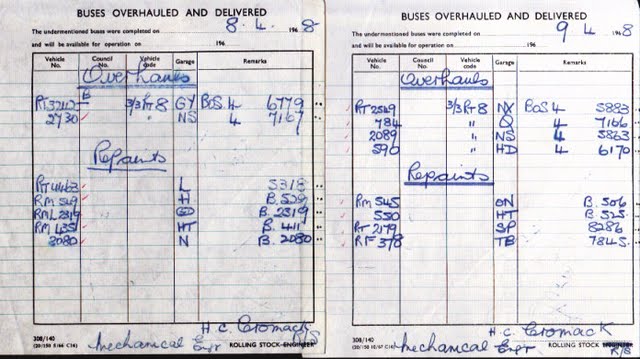 BUSES OVERHAULED AND DELIVERED
The undermentioned buses were completed on 8. 4. 1968
and will be available for operation on 196
Vehicle No. Council No. Vehicle code Garage Remarks
Overhauls
RT 3212 3/3RT8 GY BOS. 4 6779
2730 " NS 4 7167
Repaints
RT 4463 L 5318
RM 529 H B. 529
RML 2319 GD B. 2319
RM 435 HT B. 411
2080 N B. 2080
308/140
H. C. Cromack
Mechanical Engr ROLLING STOCK ENGINEER R/S
BUSES OVERHAULED AND DELIVERED
The undermentioned buses were completed on 9 4 1968
and will be available for operation on 196
Vehicle No. Council No. Vehicle code Garage Remarks
Overhauls
RT 2549 3/3RT8 NX BOS 4 5883
784 " Q 4 7166
2089 " NS 4 5863
590 " HD 4 6170
Repaints
RM 545 ON B. 506
550 HT B. 525
RT 2179 SP 8286
RF 378 TB 7845
308/140
H. C. Cromack
Mechanical Engr ROLLING STOCK R/S